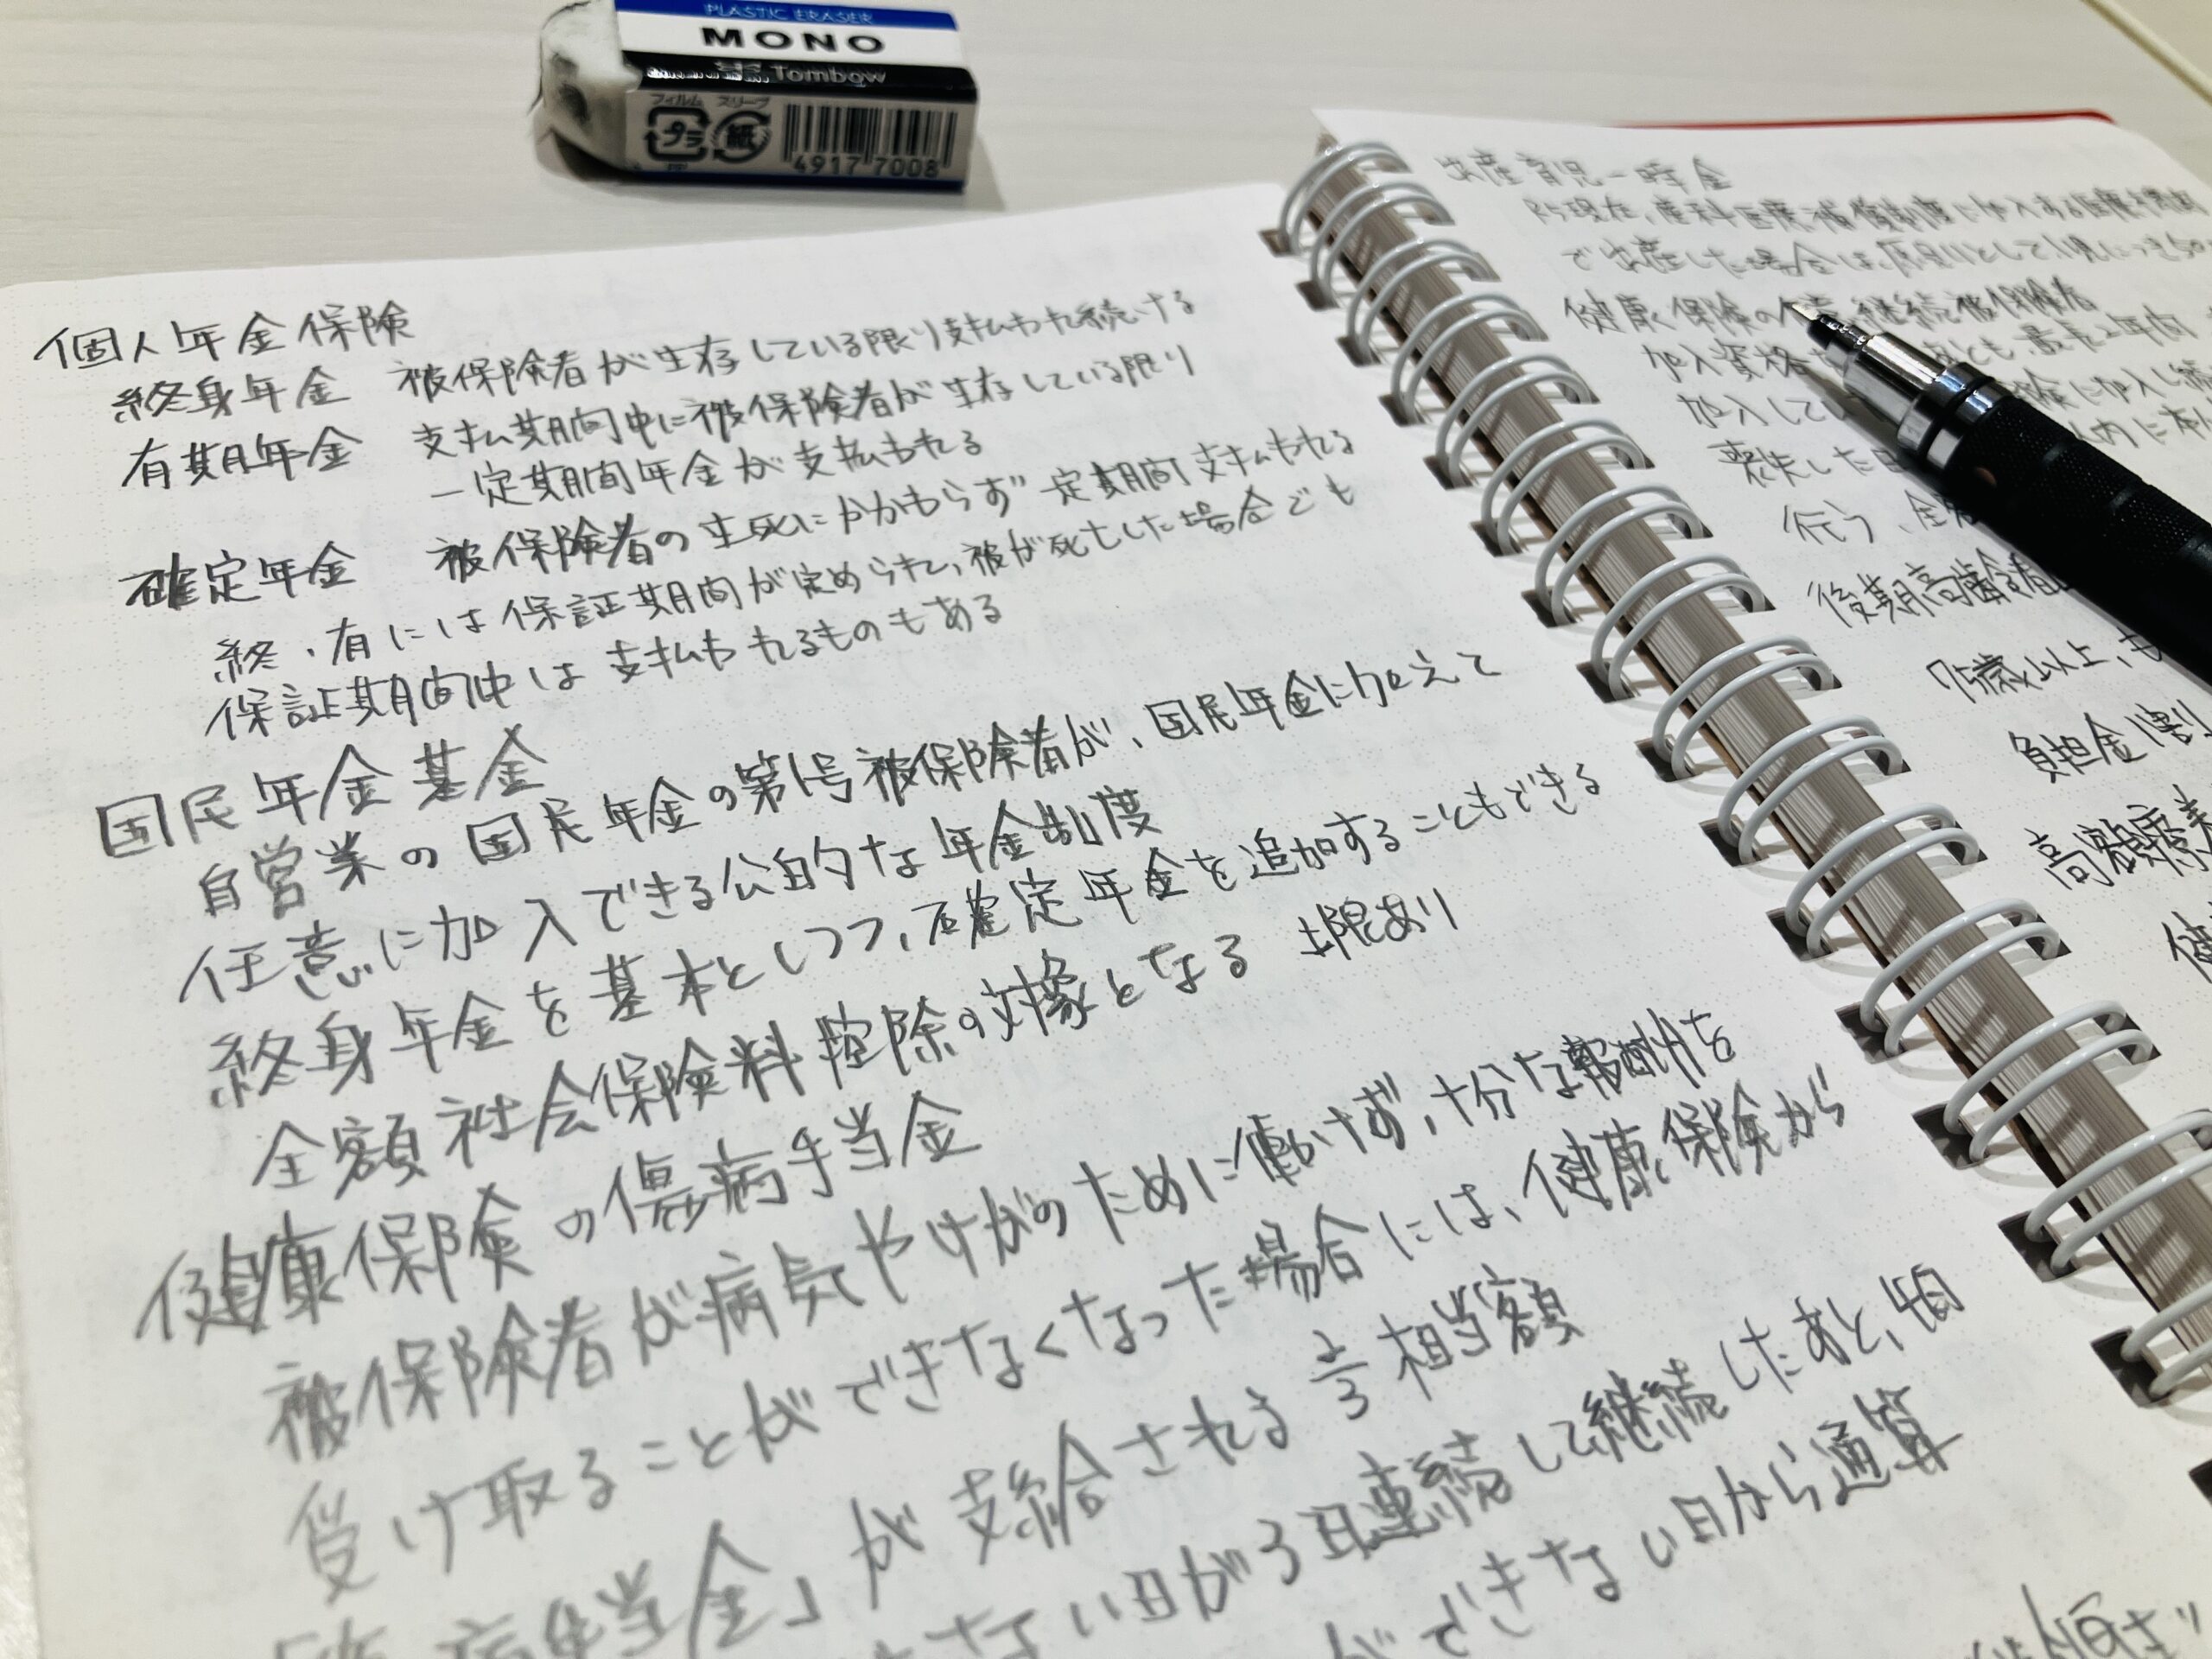 PLASTIC ERASER
MONO
Tombow
フィルム スリーブ
プラ 紙
PP
4917 7008
個人年金保険
終身年金 被保険者が生存している限り支払われ続ける
有期年金 支払期間中に被保険者が生存している限り
一定期間年金が支払われる
確定年金 被保険者の生死にかかわらず一定期間支払われる
終、有には保証期間が定められ、被が死亡した場合でも
保証期間中は支払われるものもある
国民年金基金
自営業の国民年金の第1号被保険者が、国民年金に加えて
任意に加入できる公的な年金制度
終身年金を基本としつつ、確定年金を追加することもできる
全額社会保険料控除の対象となる 上限あり
健康保険の傷病手当金
被保険者が病気やけがのために働けず、十分な報酬を
受け取ることができなくなった場合には、健康保険から
病手当金」が支給される 2/3 相当額
ない日が3日連続して継続したあと、4日
ができない日から通算
出産育児一時金
R5現在、産科医療補償制度に加入する医療機関
で出産した場合は、原則として1児につき50
健康保険の 継続被保険者
加入資格 も、最長2年間
加入して 険に加入し続
喪失した日 以内に
行う、全額
後期高齢者
75歳以上、も
負担金1割
高額療養
健